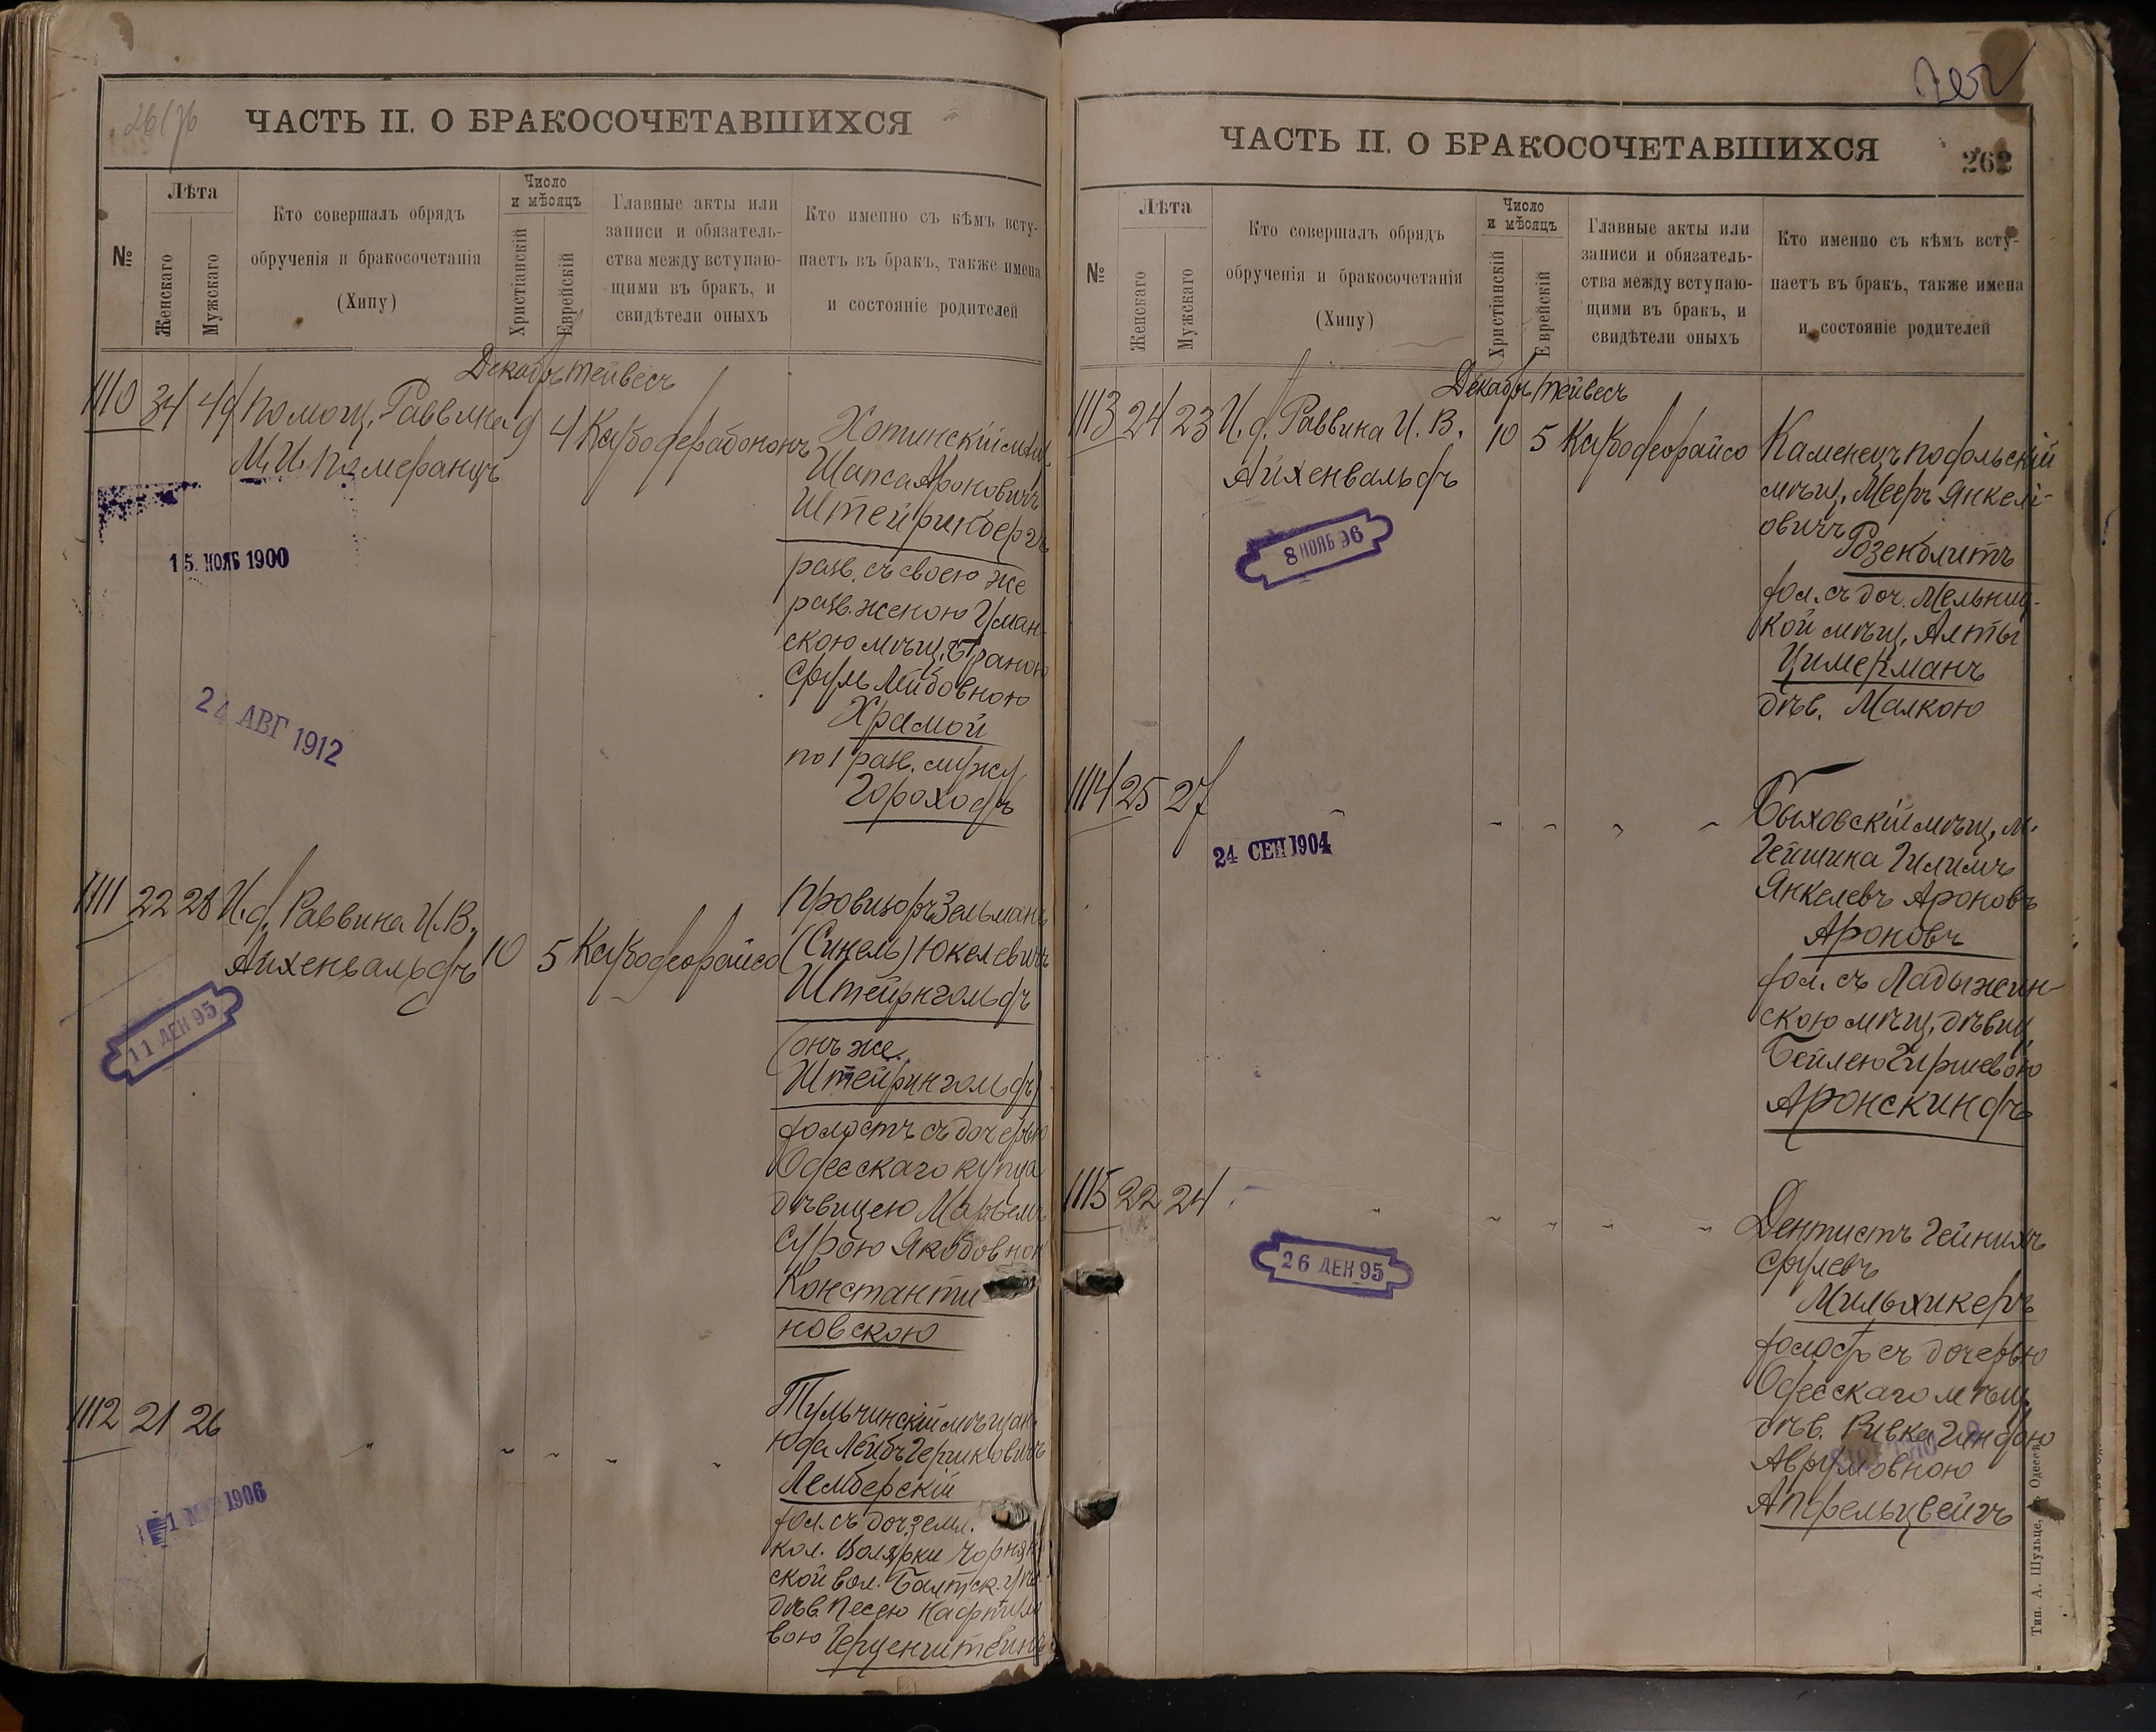 26/76
ЧАСТЬ II. О БРАКОСОЧЕТАВШИХСЯ
№
Лѣта
Женскаго
Мужскаго
Кто совершалъ обрядъ
обрученія и бракосочетанія
(Хипу)
Число
и мѣсяцъ
Христіанскій
Еврейскій
Главные акты или
записи и обязатель-
ства между вступаю-
щими въ бракъ, и
свидѣтели оныхъ
Кто именно съ кѣмъ всту-
паетъ въ бракъ, также имена
и состояніе родителей
Декабрь Тейвесъ
1110 34 49 Помощ. Раввина 9 4
М. И. Померанцъ
Хотинскій мѣщ.
Шапса Ароновичъ
Штейринбергъ
разв. съ своею же
разв. женою Уман-
скою мѣщ. Браною
Сруль Лейбовною
Храмой
по 1 разв. мужу
Гороходъ
15. НОЯБ 1900
24 АВГ 1912
1111 22 28 И. д. Раввина И. В.
Айхенвальдъ 10 5 Касубодеорайсо
Провизоръ Зельманъ
(Синель) Юкелевичъ
Штейнгольдъ
(онъ же
Штейрингольдъ)
холостъ съ дочерью
Одесскаго купца
дѣвицею
Сурою Якобовною
Константи
новскою
11 ДЕК 95
1112 21 26 " " " " "
Тульчинскій мѣщан.
Юда Лейбъ Гершковичъ
Лемберскій
хол. съ доч. земл.
кол.
ской вол. Балтск. у.
дѣв. Песею
вою Герценштейнъ
1906
262
ЧАСТЬ II. О БРАКОСОЧЕТАВШИХСЯ
262
№
Лѣта
Женскаго
Мужскаго
Кто совершалъ обрядъ
обрученія и бракосочетанія
(Хипу)
Число
и мѣсяцъ
Христіанскій
Еврейскій
Главные акты или
записи и обязатель-
ства между вступаю-
щими въ бракъ, и
свидѣтели оныхъ
Кто именно съ кѣмъ всту-
паетъ въ бракъ, также имена
и состояніе родителей
Декабрь Тейвесъ
1113 24 23 И. д. Раввина И. В. 10 5 Касубодеорайсо
Айхенвальдъ
Каменецъ подольскій
мѣщ. Мееръ Янкелі-
овичъ
Розенблитъ
хол. съ доч. Мельниц-
кой мѣщ. Алты
Цимерманъ
дѣв. Малкою
8 НОЯБ 96
1114 25 27 " " " " "
Быховскій мѣщ. м.
Гейшика Гилимъ
Янкелевъ Ароновъ
Ароновъ
хол. съ Ладыжин-
скою мѣщ. дѣвиц.
Бейлею Гиршевою
Аронскиндъ
24 СЕН 1904
1115 22 24 " " " " "
Дентистъ Гейнихъ
Срулевъ
Мильхикеръ
холост. съ дочерью
Одесскаго мѣщ.
дѣв. Ривка Гиндою
Аврумовною
Апфельцвейгъ
26 ДЕК 95
Тип. А. Шульце, въ Одессѣ